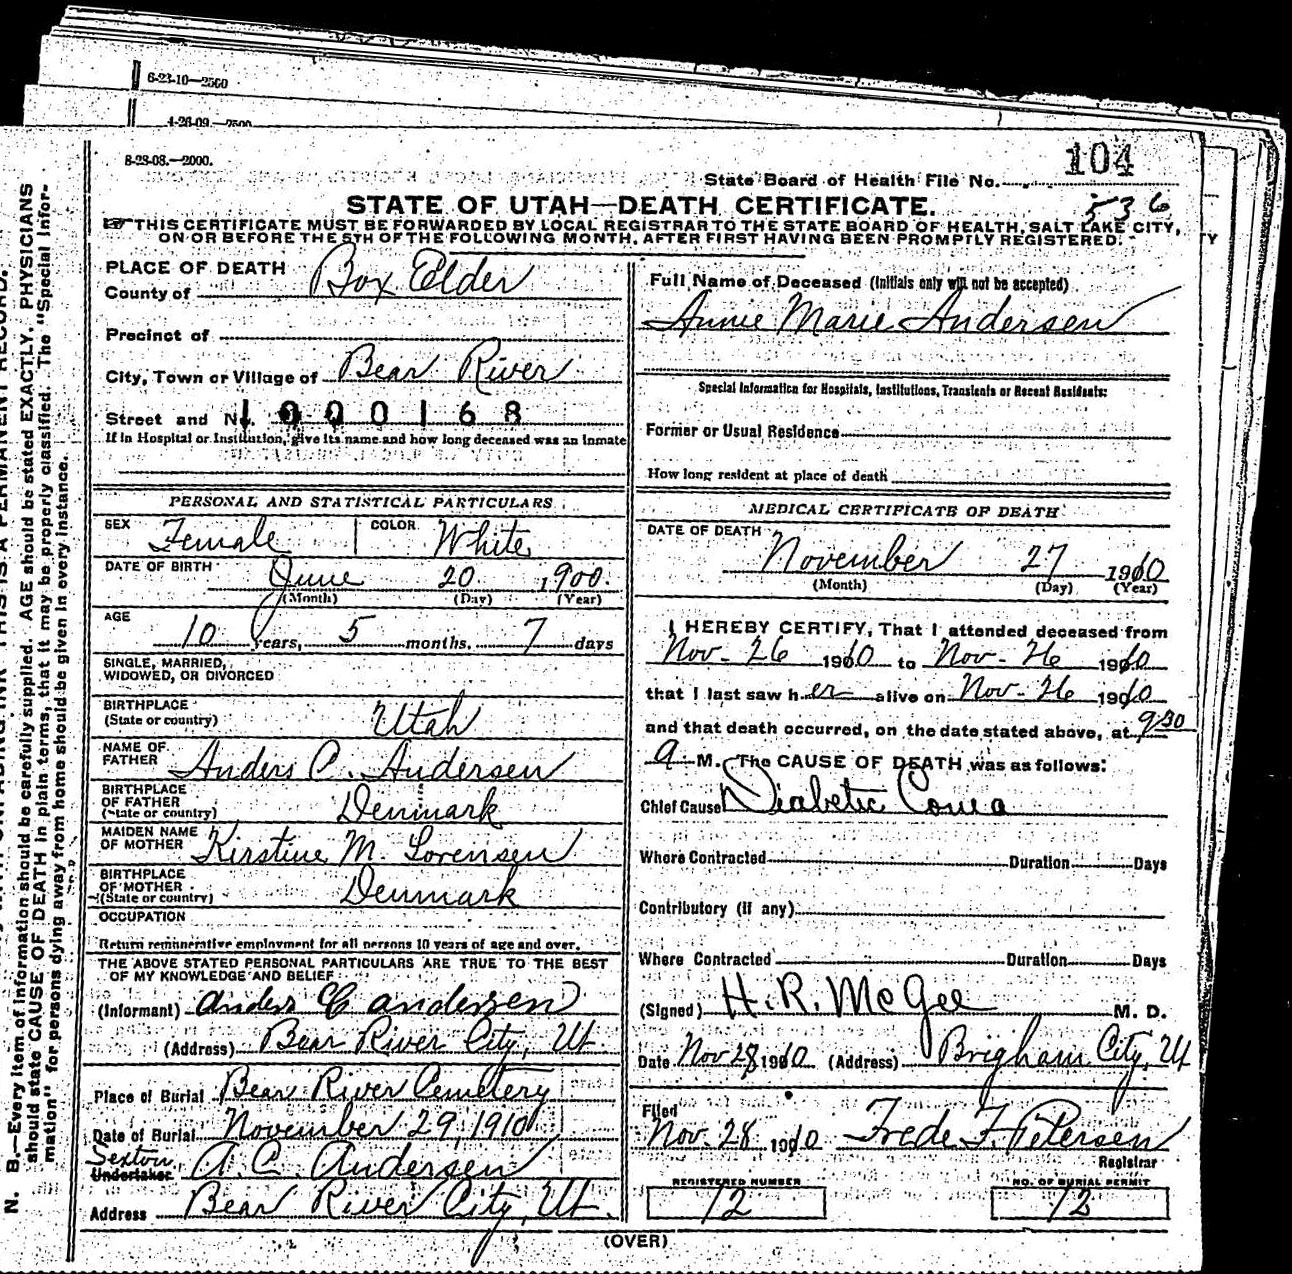 6-23-10—2500
4-26-09.—2500
8-23-08.—2000.
104
State Board of Health File No.
536
STATE OF UTAH—DEATH CERTIFICATE.
THIS CERTIFICATE MUST BE FORWARDED BY LOCAL REGISTRAR TO THE STATE BOARD OF HEALTH, SALT LAKE CITY,
ON OR BEFORE THE 5TH OF THE FOLLOWING MONTH, AFTER FIRST HAVING BEEN PROMPTLY REGISTERED.
PLACE OF DEATH
County of Box Elder
Precinct of
City, Town or Village of Bear River
Street and No. 1000168
If in Hospital or Institution, give its name and how long deceased was an inmate
PERSONAL AND STATISTICAL PARTICULARS
SEX Female COLOR White
DATE OF BIRTH June 20 1900.
(Month) (Day) (Year)
AGE 10 years, 5 months, 7 days
SINGLE, MARRIED,
WIDOWED, OR DIVORCED
BIRTHPLACE
(State or country) Utah
NAME OF
FATHER Anders C. Andersen
BIRTHPLACE
OF FATHER
(State or country) Denmark
MAIDEN NAME
OF MOTHER Kirstine M. Sorensen
BIRTHPLACE
OF MOTHER
(State or country) Denmark
OCCUPATION
Return remunerative employment for all persons 10 years of age and over.
THE ABOVE STATED PERSONAL PARTICULARS ARE TRUE TO THE BEST
OF MY KNOWLEDGE AND BELIEF
(Informant) Anders C Andersen
(Address) Bear River City, Ut.
Place of Burial Bear River Cemetery
Date of Burial November 29, 1910
Sexton
Undertaker A. C. Andersen
Address Bear River City, Ut.
Full Name of Deceased (Initials only will not be accepted)
Annie Marie Andersen
Special Information for Hospitals, Institutions, Transients or Recent Residents:
Former or Usual Residence
How long resident at place of death
MEDICAL CERTIFICATE OF DEATH
DATE OF DEATH
November 27 1910
(Month) (Day) (Year)
I HEREBY CERTIFY, That I attended deceased from
Nov. 26 1910 to Nov. 26 1910
that I last saw her alive on Nov. 26 1910
and that death occurred, on the date stated above, at 9:30
a M. The CAUSE OF DEATH was as follows:
Chief Cause Diabetic Coma
Where Contracted Duration Days
Contributory (if any)
Where Contracted Duration Days
(Signed) H. R. McGee M. D.
Date Nov 28 1910 (Address) Brigham City, Ut
Filed
Nov. 28 1910 Frede F. Petersen
Registrar
REGISTERED NUMBER
12
NO. OF BURIAL PERMIT
12
(OVER)
N. B.—Every item of information should be carefully supplied. AGE should be stated EXACTLY. PHYSICIANS
should state CAUSE OF DEATH in plain terms, that it may be properly classified. The "Special Infor-
mation" for persons dying away from home should be given in every instance.